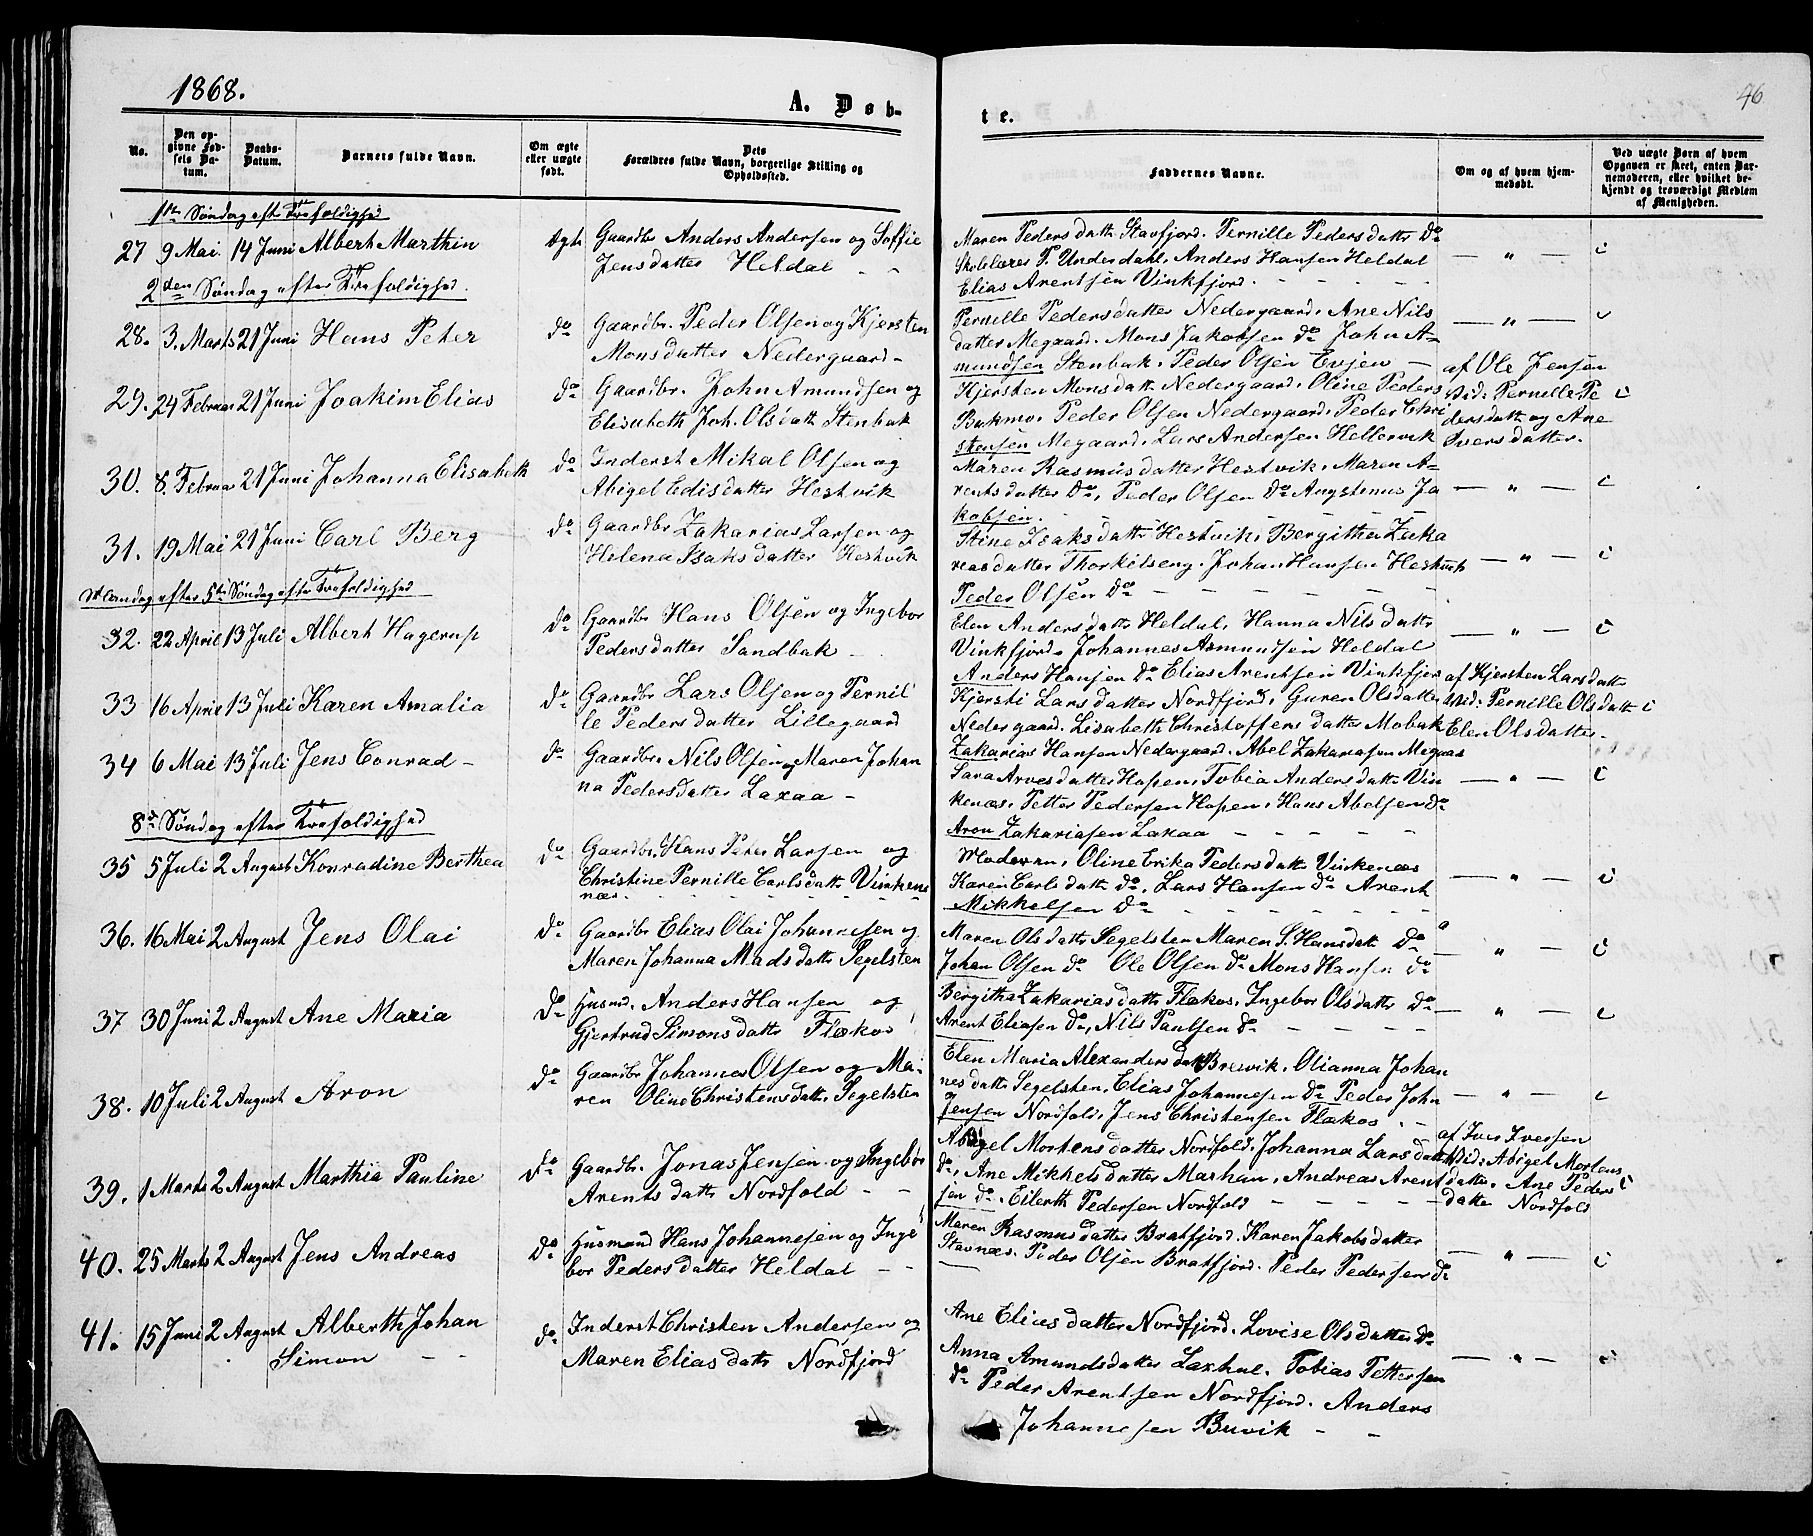 1868.
A. Døb-
te.
46
No.
Den op-
givne Fød-
sels Da-
tum.
Daabs-
Datum.
Barnets fulde Navn.
Om ægte
eller uægte
født.
Dets
Forældres fulde Navn, borgerlige Stilling og
Opholdssted.
Faddernes Navne.
Om og af hvem hjem-
medøbt.
Ved uægte Børn af hvem
Opgaven er skeet, enten Bar-
nemoderen, eller hvilket be-
kjendt og troværdigt Medlem
af Menigheden.
1ste Søndag eft Trefoldighed
27 9 Mai 14 Juni Albert Marthin Ægte Gaardbr Anders Andersen og Soffie
Jensdatter Heldal - -
Maren Pedersdattr Stavfjord. Pernille Pedersdattr Do
Skolelærer P. Underdahl. Anders Hansen Heldal — " —
Elias Arentsen Vinkfjord. - - - -
2den Søndag efter Trefoldighed.
28. 3. Marts 21 Juni Hans Peter do Gaardbr. Peder Olsen og Kjersten
Monsdatter Nedergaard -
Pernille Pedersdatter Nedergaard. Ane Nils
datter Megaard. Mons Jakobsen do John A- — " —
mundsen Stenbak. Peder Olsen Evjen —
29. 24 Februar 21 Juni Joakim Elias do Gaardbr. John Amundsen og
Elisabeth Joh. Olsdattr Stenbak
Kjersten Monsdattr Nedergaard. Oline Peders
Bakmo. Peder Olsen Nedergaard. Peder Chri
stensen Megaard. Lars Andersen Hellervik
af Ole Jensen
Vid: Pernille Pe
dersdattr og Ane
Iversdatter.
30. 8. Februar 21 Juni Johanna Elisabeth do Inderst Mikal Olsen og
Abigel Edisdatter Hestvik
Maren Rasmusdatter Hestvik. Maren A-
rentsdatter Do, Peder Olsen Do Augstinus Ja — " —
kobsen. - - - - -
31. 19 Mai 21 Juni Carl Berg do Gaardbr Zakarias Larsen og
Helena Isaksdatter Hestvik
Stine Isaksdattr Hestvik. Bergitha Zaka
reasdatter Thorkilseng. Johan Hansen Hestvik — " —
Peder Olsen do - - - - -
Mandag efter 5te Søndag efter Trefoldighed
32. 22 April 13 Juli Albert Hagerup do Gaardbr Hans Olsen og Ingebor
Pedersdatter Sandbak -
Elen Andersdattr Heldal. Hanna Nilsdattr
Vinkfjord. Johannes Asmundsen Heldal — " —
Anders Hansen do Elias Arentsen Vinkfjor
33 16 April 13 Juli Karen Amalia do Gaardbr Lars Olsen og Pernil
le Pedersdatter Lillegaard
Kjersti Larsdatter Nordfjord. Guren Olsdatter
Nedergaard. Lisabeth Christoffersdatter Mobak
Zakarias Hansen Nedergaard. Abel Zakariasen Megaar
af Kjersten Larsdattr
Vid: Pernille Olsdattr
Elen Olsdatter.
34 6 Mai 13 Juli Jens Conrad - do Gaardbr. Nils Olsen og Maren Johan
na Pedersdatter Laxaa -
Sara Arnesdatter Hopen. Tobia Andersdattr Vin
kenæs. Petter Pedersen Hopen. Hans Abelsen do — " —
Aron Zakariasen Laxaa - - - -
8de Søndag efter Trefoldighed
35 5 Juli 2 August Konradine Berthea do Gaardbr. Hans Peter Larsen og
Christine Pernille Carlsdattr Vinken
næs. - - - -
Moderen. Oline Erika Pedersdattr Vinkenæs
Karen Carlsdattr do. Lars Hansen do Arent — " —
Mikkelsen Do - - - - -
36. 16 Mai 2 August Jens Olai do Gaardbr Elias Olai Johannesen og
Maren Johanna Madsdattr Segelsten
Maren Olsdattr Segelsten Maren S. Hansdatt Do — " —
Johan Olsen do Ole Olsen do Mons Hansen do
37 30 Juni 2 August Ane Maria do Husmd. Anders Hansen og
Gjertrud Simonsdattr Flækos
Bergitha Zakariasdattr Flækos. Ingebor Olsdattr Do — " —
Arent Eliasen do, Nils Paulsen do - - - -
38. 10 Juli 2 August Aron do Gaardbr Johannes Olsen og Ma-
ren Oline Christensdattr Segelsten
Elen Maria Alexandersdattr Brevik. Olianna Johan
nesdattr Segelsten. Elias Johannesen Do Peder John — " —
Jensen Nordfold. Jens Christensen Flækos. -
39. 1 Marts 2 August Marthia Pauline do Gaardbr. Jonas Jensen og Ingebor
Arentsdattr Nordfold - -
Abigel Mortensdatter Nordfold. Johanna Larsdatt
do, Ane Mikkelsdatter Marhau. Andreas Arent
sen do. Eilerth Pedersen Nordfold - - - -
af Iver Iversen
Vid: Abigel Mortens
datter. Ane Peders
datter Nordfold
40. 25 Marts 2 August Jens Andreas do Husmand Hans Johannesen og Inge
bor Pedersdatter Heldal - -
Maren Rasmusdatter Bratfjord. Karen Jakobsdatter
Stavnæs. Peder Olsen Bratfjord. Peder Pedersen do — " —
41. 15 Juni 2 August Alberth Johan
Simon - -
do. Inderst Christen Andersen og
Maren Eliasdattr Nordfjord
Ane Eliasdatter Nordfjord. Lovise Olsdatter do
Anna Amundsdatter Laxhul. Tobias Pettersen — " —
do Peder Arentsen Nordfjord. Anders
Johannesen Buvik - -